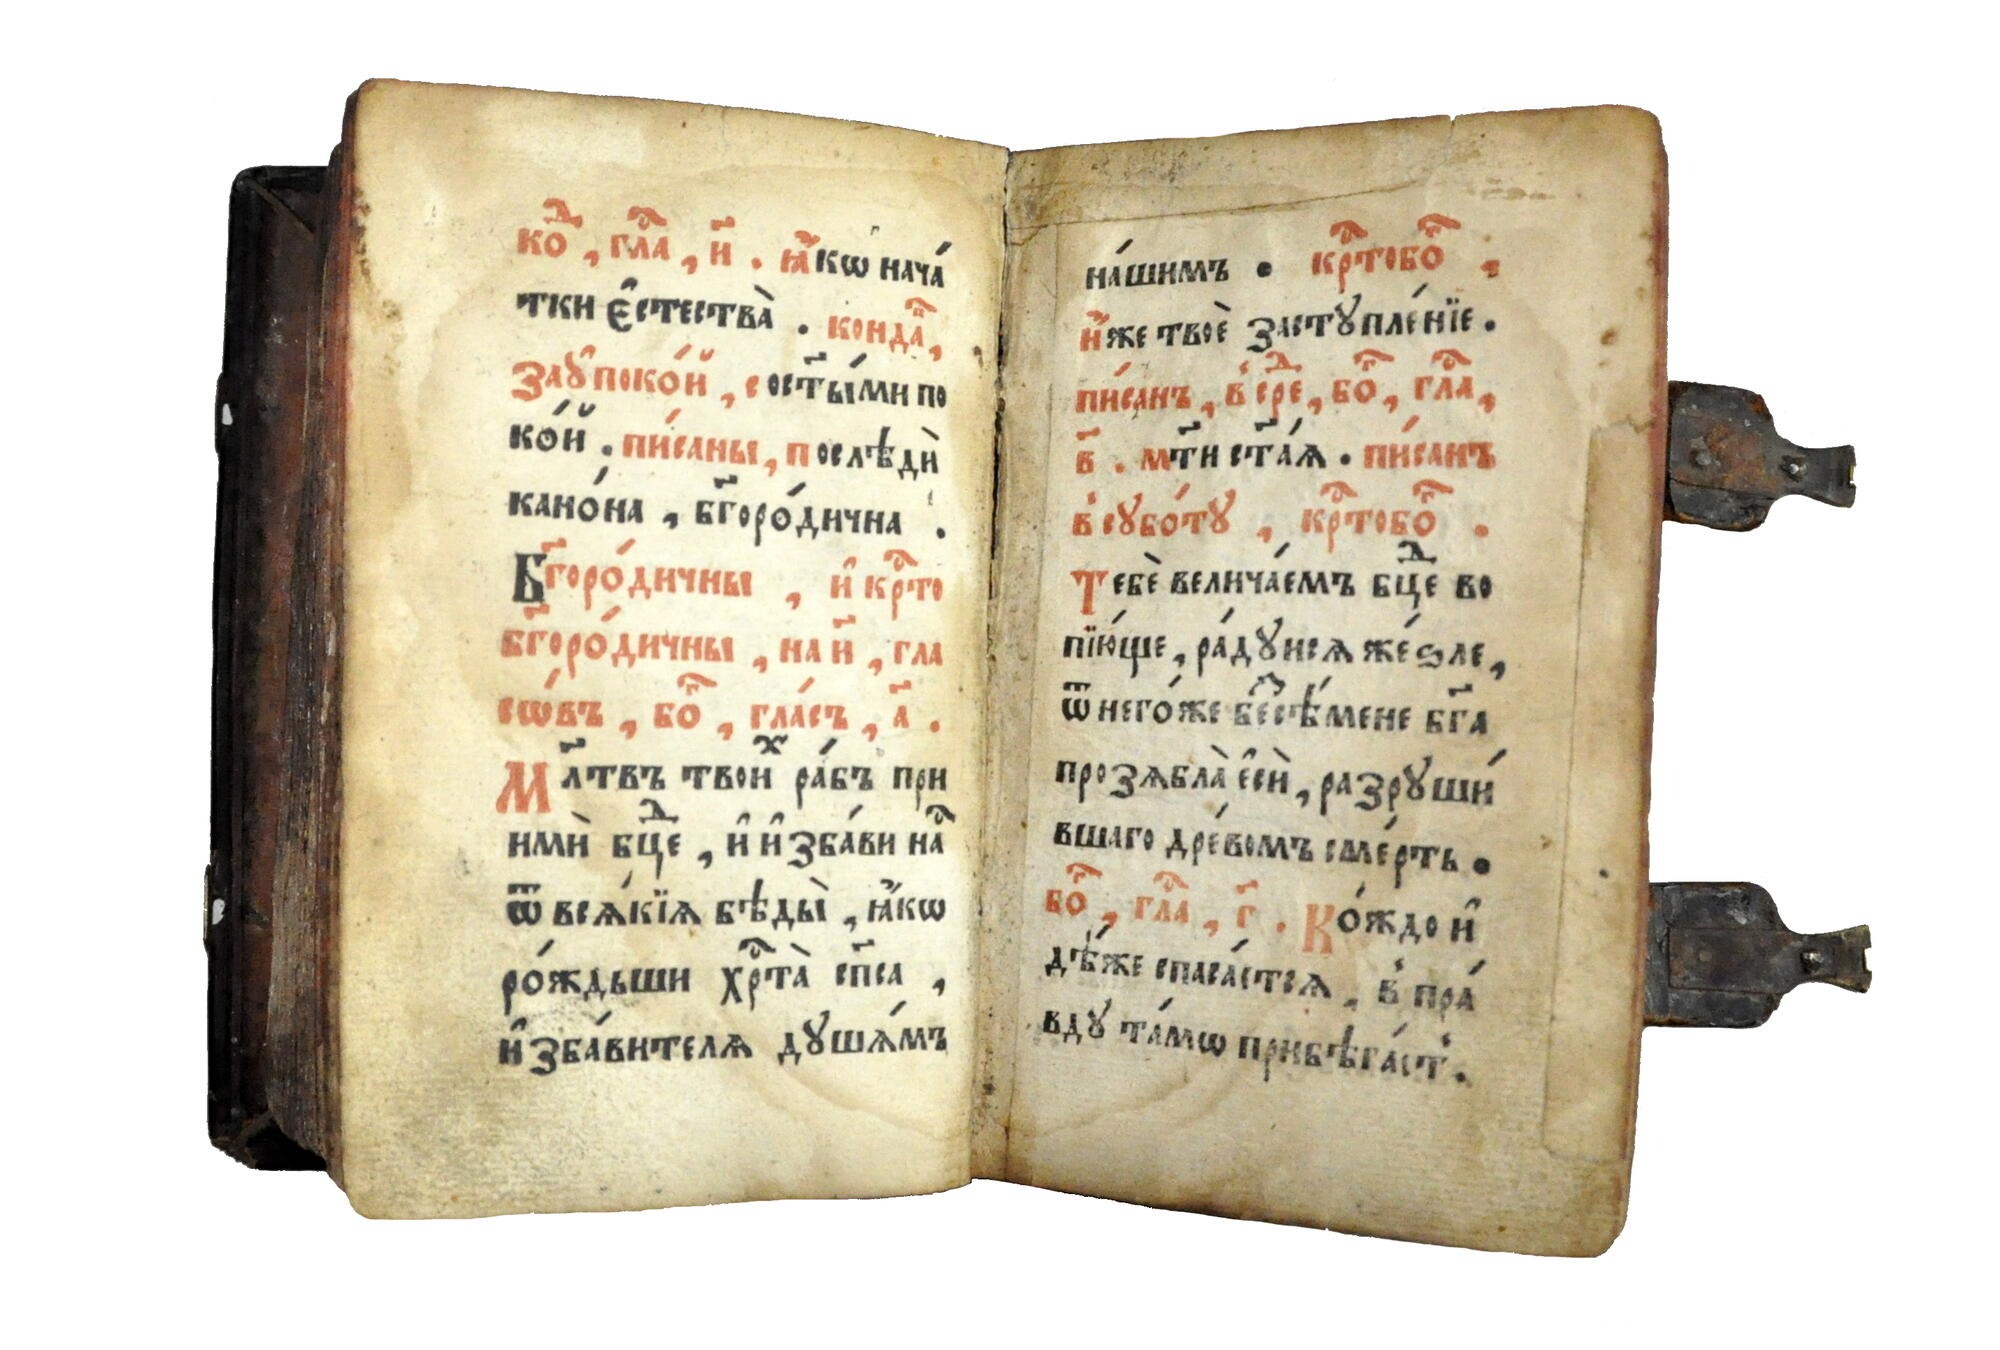 коⷣ҇, глⷭ҇а, и҃. ꙗ҆́кѡ нача́
тки є҆стества̀. конда́ⷦ҇,
заꙋ҆поко́й, со ст҃ы́ми по
ко́й. пи́саны, послѣдѝ
кано́на, бг҃оро́дична.
Бг҃оро́дичны, и҆ крⷭ҇то
бг҃оро́дичны, на и҃, гла
со́въ, боⷢ҇, гла́съ, а҃.
Мл҃твъ твоиⷯ ра́бъ при
имѝ бцⷣе, и҆ и҆зба́ви наⷭ҇
ѿ всѧ́кїѧ бѣды̀, ꙗ҆́кѡ
ро́ждьши хрⷭ҇та̀ сп҃са,
и҆зба́вителѧ дꙋша́мъ
на́шимъ. крⷭ҇тобоⷢ҇,
И҆́же твоѐ застꙋпле́нїе.
пи́санъ, в̾ среⷣ, боⷢ҇, глⷭ҇а,
в҃. мт҃и ст҃а́ѧ. пи́санъ
в̾ сꙋбо́тꙋ, крⷭ҇тобоⷢ҇.
Тебѐ велича́емъ бцⷣе во
пїю́ще, ра́дꙋйсѧ же́зле,
ѿ него́же беⷥсѣ́мене бг҃а
прозѧбла̀ є҆сѝ, разрꙋши́
вшаго дре́вомъ сме́рть.
боⷢ҇, глⷭ҇а, г҃. Ко́ждо и҆
дѣ́же спаса́етсѧ, в̾ пра́
вдꙋ та́мѡ прибѣга́етъ.